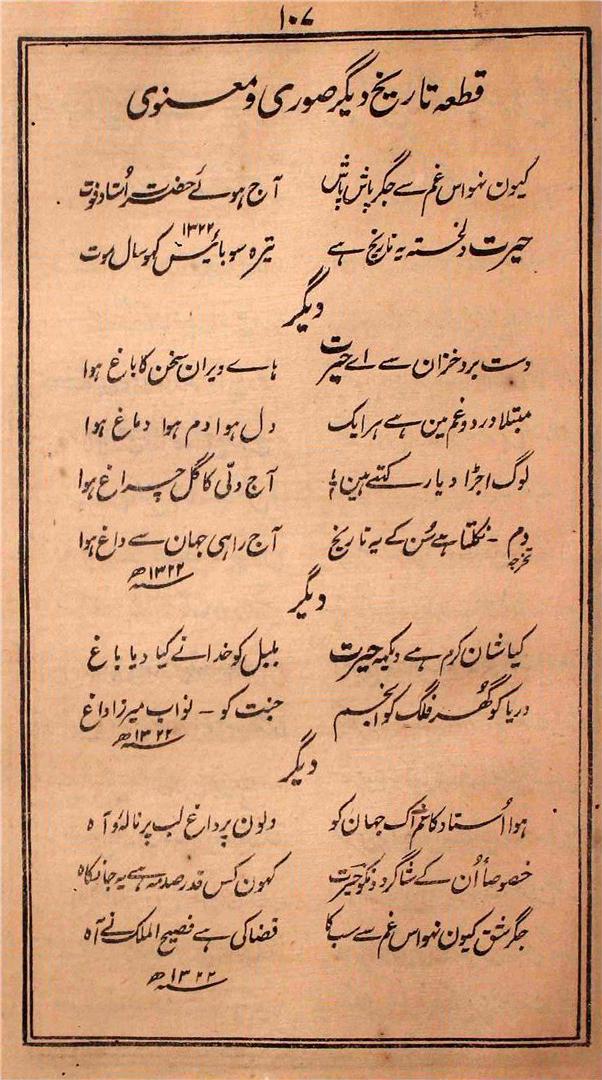 ۱۰۷
قطعہ تاریخ دیگر صوری و معنوی
کیون نہو اس غم سے جگر پاش پاش آج ہوئے حضرت اُستاد فوت
حیرت دلخستہ یہ تاریخ ہے تیرہ سو بائیس کو سال موت ۱۳۲۲
دیگر
دست برد خزان سے اے حیرت ہاے ویران سخن کا باغ ہوا
مبتلا درد و غم مین ہے ہر ایک دل ہوا دم ہوا دماغ ہوا
لوگ اجڑا دیار کہتے ہین آج دلّی کا گل چراغ ہوا
دم - نکلتا ہے سُن کے یہ تاریخ آج راہی جہان سے داغ ہوا
تخرجہ ۱۳۲۲ھ
دیگر
کیا شان کرم ہے دیکھ حیرت بلبل کو خدا نے کیا دیا باغ
دریا کو گُہر فلک کو انجم جنت کو - نواب میرزا داغ
۱۳۲۲ھ
دیگر
ہوا اُستاد کا غم اک جہان کو دلون پر داغ لب پر نالہ و آہ
خصوصاً اُن کے شاگردونکو حیرت کہون کس قدر صدمہ ہے یہ جانکاہ
جگر شق کیون نہو اس غم سے سب کا قضا کی ہے فصیح الملک نے آہ
۱۳۲۲ھ